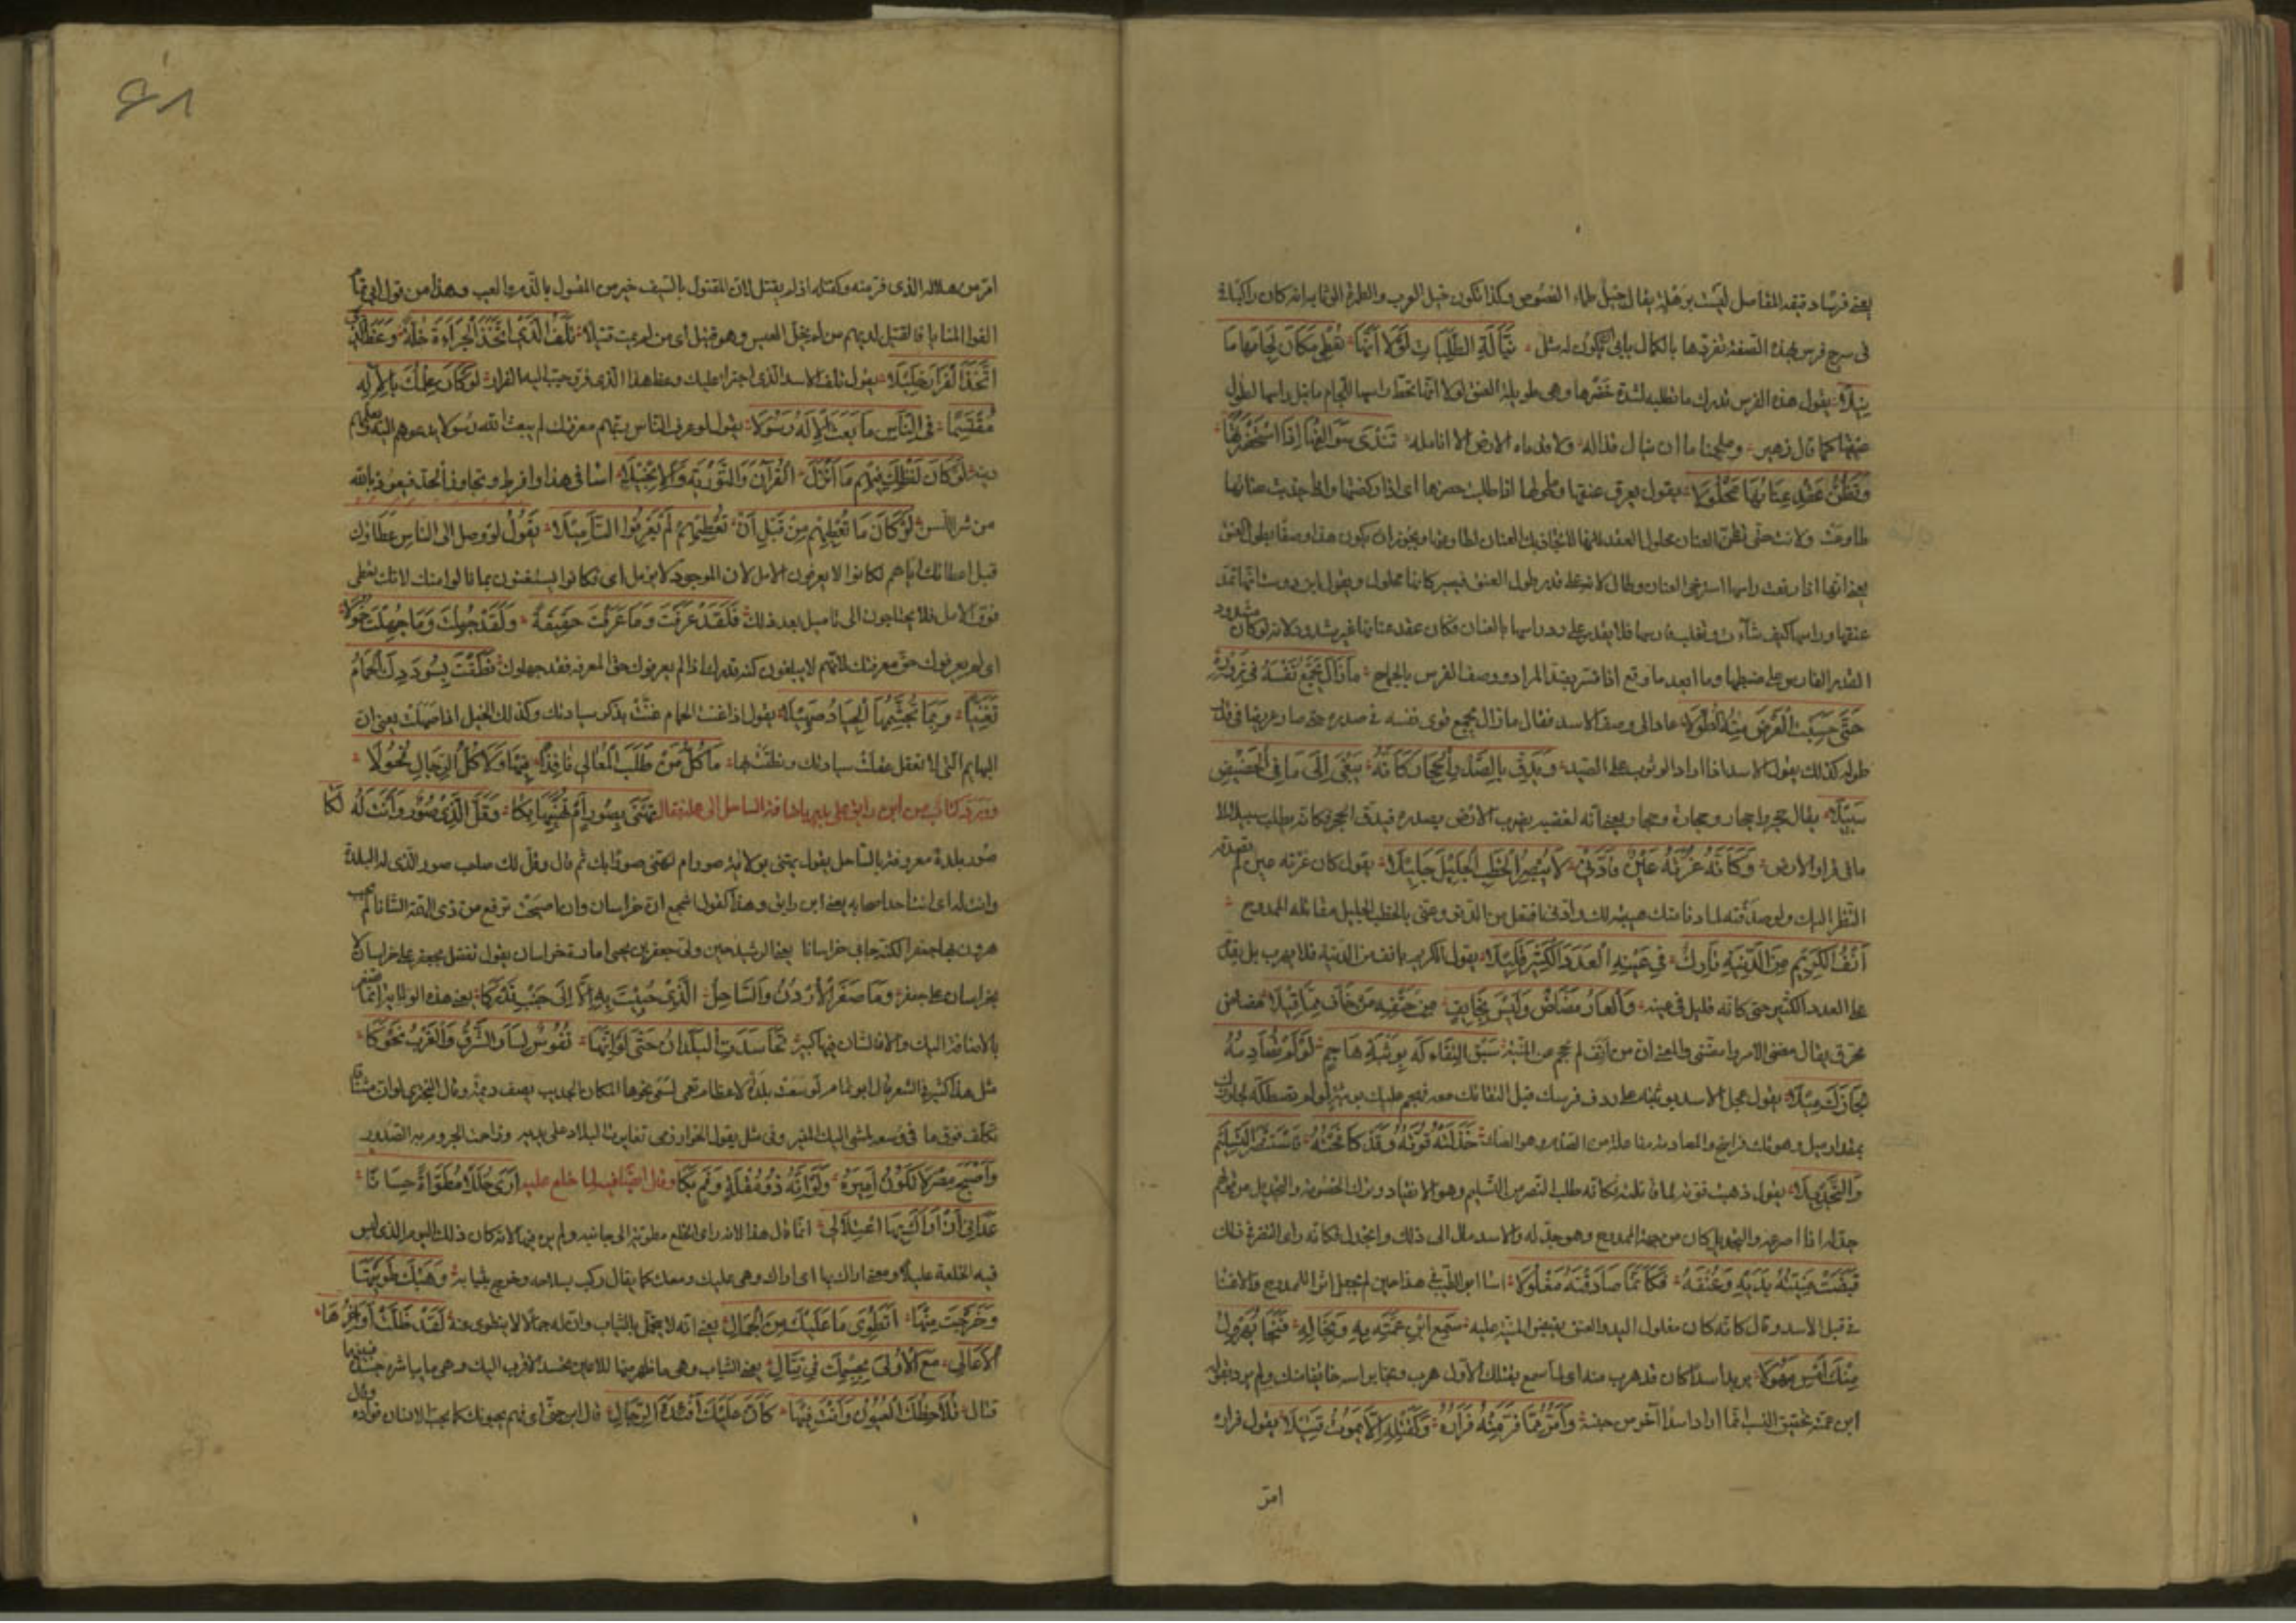 يعنى فرسا دقيقة المفاصل ليست برهلة يقال خيل ظماء الفصوص وكذا تكون خيل العرب والطمرة الوثابة يريد انه كان راكبا
فى سرج فرس بهذه الصفة تفردها بالكمال يأبى ان يكون له مثل نَيَّالَةِ الطَّلِبَاتِ لَوْلَا أَنَّهَا تُعْطِي مَكَانَ لِجَامِهَا مَا
نِيلَا يقول هذه الفرس تدرك ما تطلبه لشدة حضرها وهى طويلة العنق لولا انها تحط راسها للجام ما نيل راسها لطول
عنقها كما قال زهير وملجمنا ما ان ينال قذاله ولا قدماه الارض الا انامله تَنْدَى سَوَالِفُهَا إِذَا اسْتَحْضَرْتَهَا
وَتَظُنُّ عَقْدَ عِنَانِهَا مَحْلُولَا يقول يعرق عنقها وما حولها اذا طلبت حضرها اى اذا ركضتها واذا جذبت عنانها
طاوعت ولانت حتى تظن العنان محلول العقد
يعنى انها اذا رفعت راسها استرخى العنان وطال لانه على قدر طول العنق فيصير كانه محلول ويقول ابن دوست انها تمد
عنقها وراسها كيف شاءت وتغلب فارسها فلا يقدر على رد راسها بالعنان فكان عقد عنانها غير مشدود لانه لو كان مشدود
لقدر الفارس على ضبطها وما ابعد ما وقع اذا فسر بضد المراد ووصف الفرس بالجماح مَا زَالَ يَجْمَعُ نَفْسَهُ فِي زَوْرِهِ
حَتَّى حَسِبْتَ الْعَرْضَ مِنْهُ الطُّولَا عاد الى وصف الاسد فقال ما زال يجمع قوى نفسه فى صدره حتى صار عرضه فى قدر
طوله كذلك يفعل الاسد اذا اراد الوثوب على الصيد وَيَدُقُّ بِالصَّدْرِ الْحِجَارَ كَأَنَّهُ يَبْغِي إِلَى مَا فِي الْحَضِيضِ
سَبِيلَا يقال حجر واحجار وحجارة وحجار يعنى انه لغضبه يضرب الارض بصدره فيدق الحجر فكانه يطلب سبيلا الى
ما فى قرار الارض وَكَأَنَّهُ غَرَّتْهُ عَيْنٌ فَادَّنَى لَا يُبْصِرُ الْخَطْبَ الْجَلِيلَ جَلِيلَا يقول كان غرته عين لم تصدقه
النظر اليك ولو صدقته لما دنا منك هيبة لك وادنى افتعل من الدنو وعنى بالخطب الجليل مقاتلة الممدوح
أَنَفُ الْكَرِيمِ مِنَ الدَّنِيَّةِ تَارِكٌ فِي عَيْنِهِ الْعَدَدَ الْكَثِيرَ قَلِيلَا يقول الكريم يانف من الدنية فلا يهرب بل يقدم
على العدد الكثير حتى كانه قليل فى عينه وَالْعَارُ مَضَّاضٌ وَلَيْسَ بِخَائِفٍ مِنْ حَتْفِهِ مَنْ خَافَ مِمَّا قِيلَا مضاض
محرق يقال مضنى الامر وامضنى والمعنى ان من انف لم يحجم عن المنية سَبَقَ الْتِقَاءَكَهُ بِوَثْبَةِ هَاجِمٍ لَوْ لَمْ تُصَادِمْهُ
لَجَازَكَ مِيلَا يقول عجل الاسد بوثبة على ردف فرسك قبل التقائك معه فهجم عليك بوثبة لو لم
خَذَلَتْهُ قُوَّتُهُ وَقَدْ كَافَحْتَهُ فَاسْتَنْصَرَ التَّسْلِيمَ
وَالتَّجْدِيلَا يقول ذهبت قوته لما قاتلته فكانه طلب النصر من التسليم وهو الانقياد وترك الخصومة والتجديل من قولهم
جدله اذا صرعه والتجديل كان من جهة الممدوح وهو جدله والاسد مال الى ذلك وانجدل فكانه راى النصرة فى ذلك
قَبَضَتْ مَنِيَّتُهُ يَدَيْهِ وَعُنْقَهُ فَكَأَنَّمَا صَادَفْتَهُ مَغْلُولَا اساء ابو الطيب فى هذا حين لم يجعل اثرا للممدوح
فى قتل الاسد وقال كانه كان مغلول اليد والعنق بقبض المنية عليه سَمِعَ ابْنُ عَمَّتِهِ بِهِ وَبِحَالِهِ فَنَجَا يُهَرْوِلُ
مِنْكَ أَمْسِ مَهُولَا يريد اسدا كان قد هرب منه اى لما سمع بقتلك الاول هرب ونجا براسه خائفا منك ولم يرد بقوله
ابن عمته تحقيق النسب انما اراد اسدا آخر من جنسه وَأَمَرُّ مِمَّا فَرَّ مِنْهُ فِرَارُهُ وَكَقَتْلِهِ أَلَّا يَمُوتَ قَتِيلَا يقول فراره
امر
امر من هلاكه الذى فر منه وكقتله اذ لم يقتل لان المقتول بالسيف خير من المقتول بالذم والعيب وهذا من قول ابى تمام
الفوا المنايا فالقتيل لديهم من لم يخل العيش وهو قتيل اى من لم يمت قتيلا تَلَفُ الَّذِي اتَّخَذَ الْجَرَاءَةَ خُلَّةً وَعَظَ الَّذِي
اتَّخَذَ الْفِرَارَ خَلِيلَا يقول تلف الاسد الذى اجترا عليك وعظ هذا الذى فر وحبب اليه الفرار لَوْ كَانَ عِلْمُكَ بِالْإِلَهِ
مُقَسَّمًا فِي النَّاسِ مَا بَعَثَ الْإِلَهُ رَسُولَا يقول لو عرف الناس ربهم معرفتك لم يبعث الله رسولا يدعوهم اليه ويعلمهم
دينه لَوْ كَانَ لَفْظُكَ فِيهِمِ مَا أَنْزَلَ الْقُرْآنَ وَالتَّوْرَيةَ وَالْإِنْجِيلَا اساء فى هذا وافرط وتجاوز الحد فنعوذ بالله
من شر اللسن لَوْ كَانَ مَا تُعْطِيهِمِ مِنْ قَبْلِ أَنْ تُعْطِيهِمِ لَمْ يَعْرِفُوا التَّأْمِيلَا يَقُولُ لو وصل الى الناس عطاؤك
قبل اعطائك اياهم لكانوا لا يعرفون الامل لان الموجود لا يؤمل اى فكانوا يستغنون بما نالوا منك لانك تعطى
فوق الامل فلا يحتاجون الى تاميل بعد ذلك فَلَقَدْ عُرِفْتَ وَمَا عُرِفْتَ حَقِيقَةً وَلَقَدْ جُهِلْتَ وَمَا جُهِلْتَ خُمُولَا
اى لم يعرفوك حق معرفتك لانهم لا يبلغون كنه قدرك اذا لم يعرفوك حق المعرفة فقد جهلوك نَطَقَتْ بِسُودَدِكَ الْحَمَامُ
تَغَنِّيًا وَبِمَا تُجَشِّمُهَا الْجِيَادُ صَهِيلَا يقول اذا غنت الحمام غنت بذكر سيادتك وكذلك الخيل اذا صهلت يعنى ان
البهايم التى لا تعقل عقلت سيادتك ونطقت بها مَا كُلُّ مَنْ طَلَبَ الْمَعَالِي نَافِذًا فِيهَا وَلَا كُلُّ الرِّجَالِ فُحُولَا
وورد كتاب من ابن رايق على بدر باضافة الساحل الى عمله فقال تُهَنَّى بِصُورٍ أَمْ نُهَنِّئُهَا بِكَا وَقَلَّ الَّذِي صُورٌ وَأَنْتَ لَهُ لَكَا
صور بلدة معروفة بالساحل يقول تهنى بولاية صور ام نهنى صورا بك ثم قال وقل لك صاحب صور الذى له البلدة
وانت له اى انت احد اصحابه يعنى ابن رايق وهذا كقول اشجع ان خراسان وان اصبحت ترفع من ذى الهمة الشانا لم يحب
هرون بها جعفرا لكنه حابى خراسانا يعنى الرشيد حين ولى جعفر بن يحيى امارة خراسان يقول تفضل بجعفر على خراسان لا
بخراسان على جعفر وَمَا صَغُرَ الْأُرْدُنُّ وَالسَّاحِلُ الَّذِي حُبِيتَ بِهِ إِلَّا إِلَى جَنْبِ قَدْرِكَا يعنى هذه الولاية انما تصغر
بالاضافة اليك والا فالشان فيها كبير تَحَاسَدَتِ الْبُلْدَانُ حَتَّى لَوَ انَّهَا نُفُوسٌ لَسَارَ الشَّرْقُ وَالْغَرْبُ نَحْوَكَا
مثل هذا كثير فى الشعر قال ابو تمام لو سعت بلدة لاعظام نعمى لسعى نحوها المكان الجديب يصف ديمة وقال البحترى لو ان مشتاقا
تكلف فوق ما فى وسعه لمشى اليك المنبر
وَأَصْبَحَ مِصْرٌ لَا تَكُونُ أَمِيرَهُ وَلَوَ انَّهُ ذُو مُقْلَةٍ وَفَمٍ بَكَا وقال ايضا فيه لما خلع عليه أَرَى حُلَلًا مُطَوَّاةً حِسَانًا
عَدَانِي أَنْ أَرَاكَ بِهَا اعْتِلَالِي انما قال هذا لانه راى الخلع مطوية الى جانبه ولم يره فيها لانه كان ذلك اليوم الذى لبس
فيه الخلعة عليلا ومعنى اراك بها اى اراك وهى عليك ومعك كما يقال ركب بسلاحه وخرج بثيابه وَهَبْكَ طَوَيْتَهَا
وَخَرَجْتَ مِنْهَا أَتَطْوِي مَا عَلَيْكَ مِنَ الْجَمَالِ يعنى انه لا يتجمل بالثياب وان له جمالا لا ينطوى عنه لَقَدْ ظَلَّتْ أَوَاخِرُهَا
الْأَعَالِي مَعَ الْأُولَى بِجِسْمِكَ فِي قِتَالِ يعنى الثياب وهى ما ظهر منها للاعين تحسد الاقرب اليك وهى ما يباشر جسدك فبينهما
قتال تُلَاحِظُكَ الْعُيُونُ وَأَنْتَ فِيهَا كَأَنَّ عَلَيْكَ أَفْئِدَةَ الرِّجَالِ قال ابن جنى اى فهم يحبونك كما يحب الانسان فواده وقال